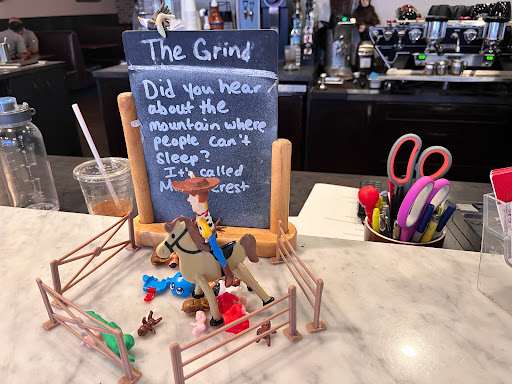 The Grind
Did you hear
about the
mountain where
people can't
sleep?
It's called